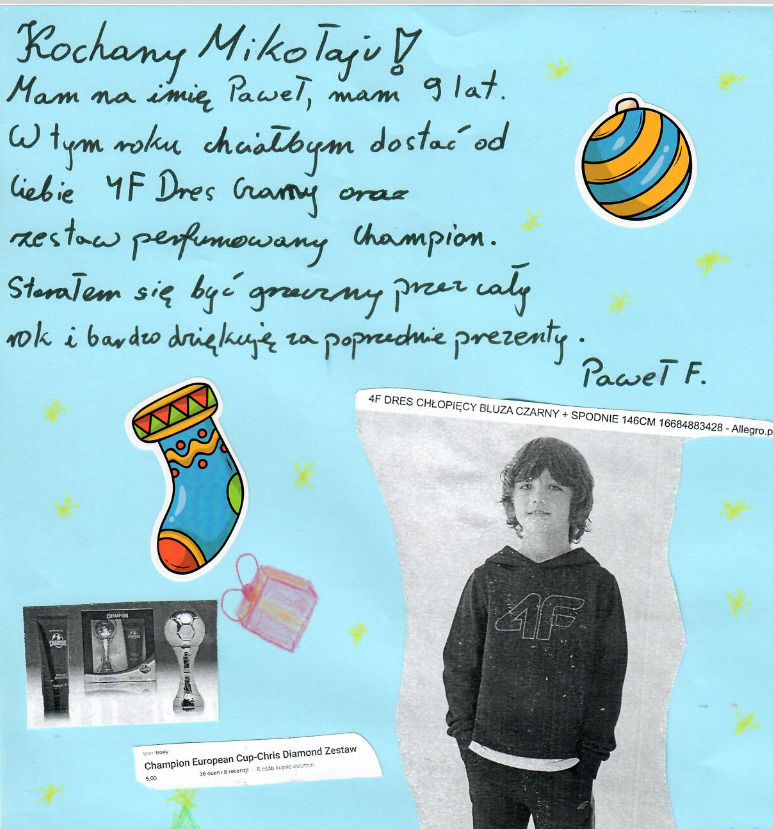 Kochany Mikołaju!
Mam na imię Paweł, mam 9 lat.
W tym roku chciałbym dostać od
Ciebie 4F Dres Czarny oraz
zestaw perfumowany Champion.
Starałem się być grzeczny przez cały
rok i bardzo dziękuję za poprzednie prezenty.
Paweł F.
4F DRES CHŁOPIĘCY BLUZA CZARNY + SPODNIE 146CM 16684883428 - Allegro.p
4F
CHAMPION
Stan Nowy
Champion European Cup-Chris Diamond Zestaw
5,00 36 ocen i 8 recenzji 8 osób kupiło ostatnio